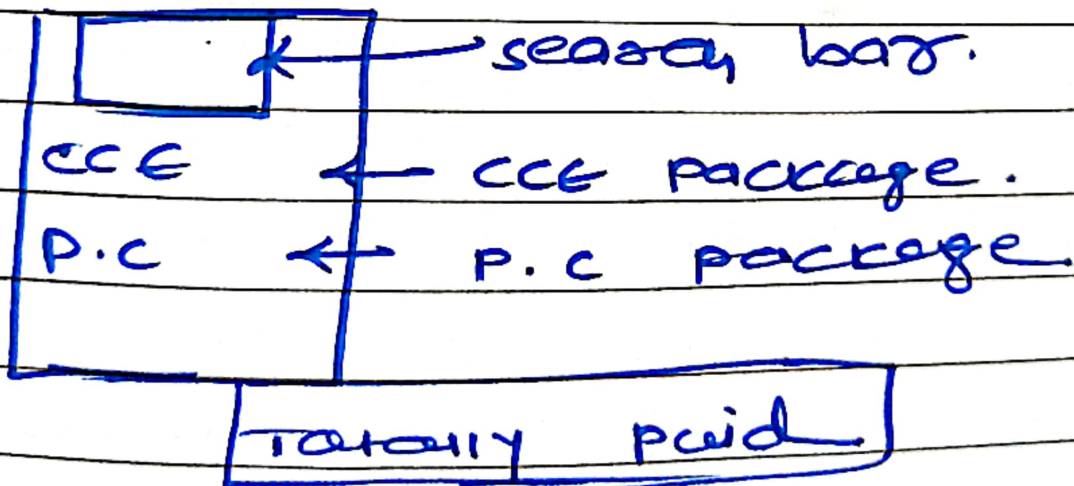 search bar.
CCE ← CCE package.
P.C ← P.C package
Totally paid